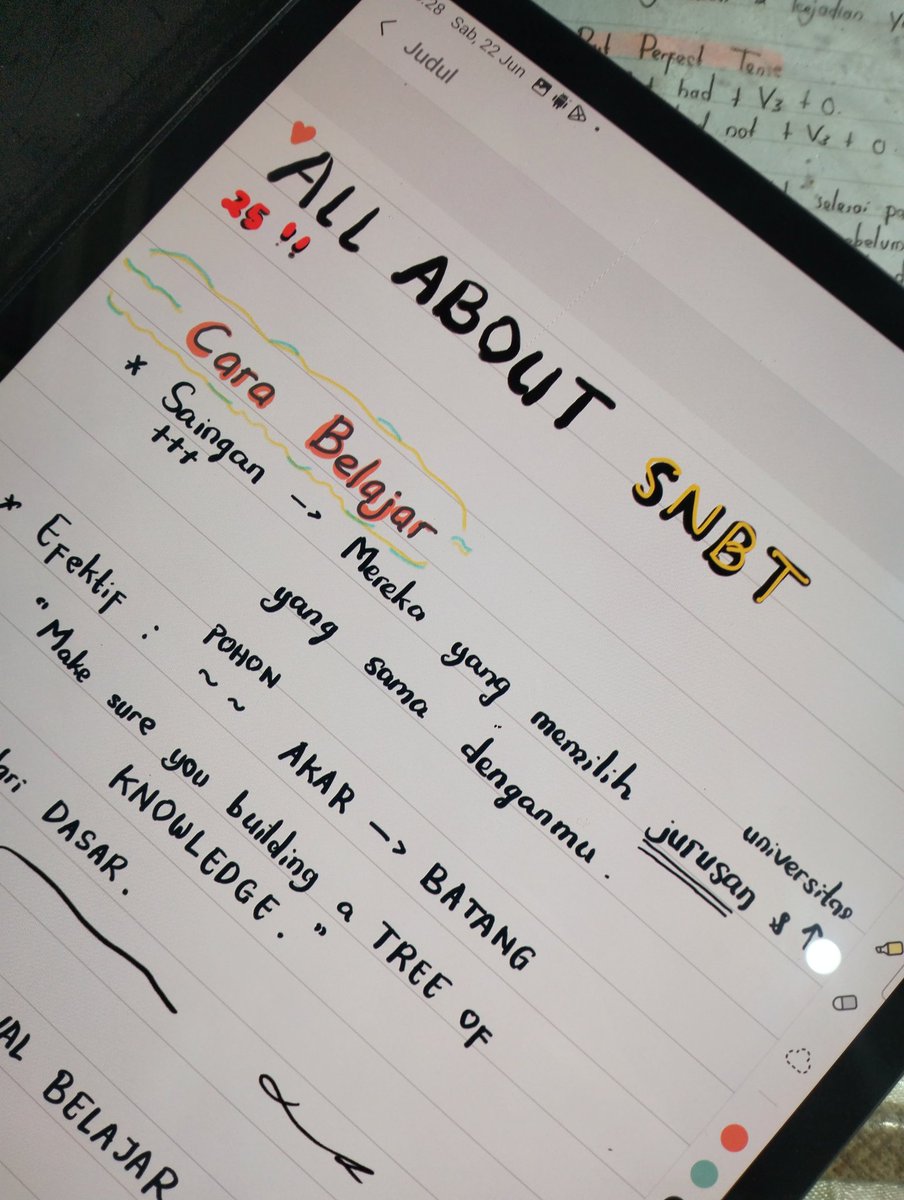 :28 Sab, 22 Jun
Judul
ALL ABOUT SNBT
25 !!
Cara Belajar
* Saingan -> Mereka yang memilih universitas
+++ yang sama denganmu. jurusan & ↑
* Efektif : POHON AKAR -> BATANG
"Make sure you building a TREE OF
KNOWLEDGE."
DASAR.
BELAJAR
kejadian
Perfect Tense
had + V3 + O.
not + V3 + O.
selesai